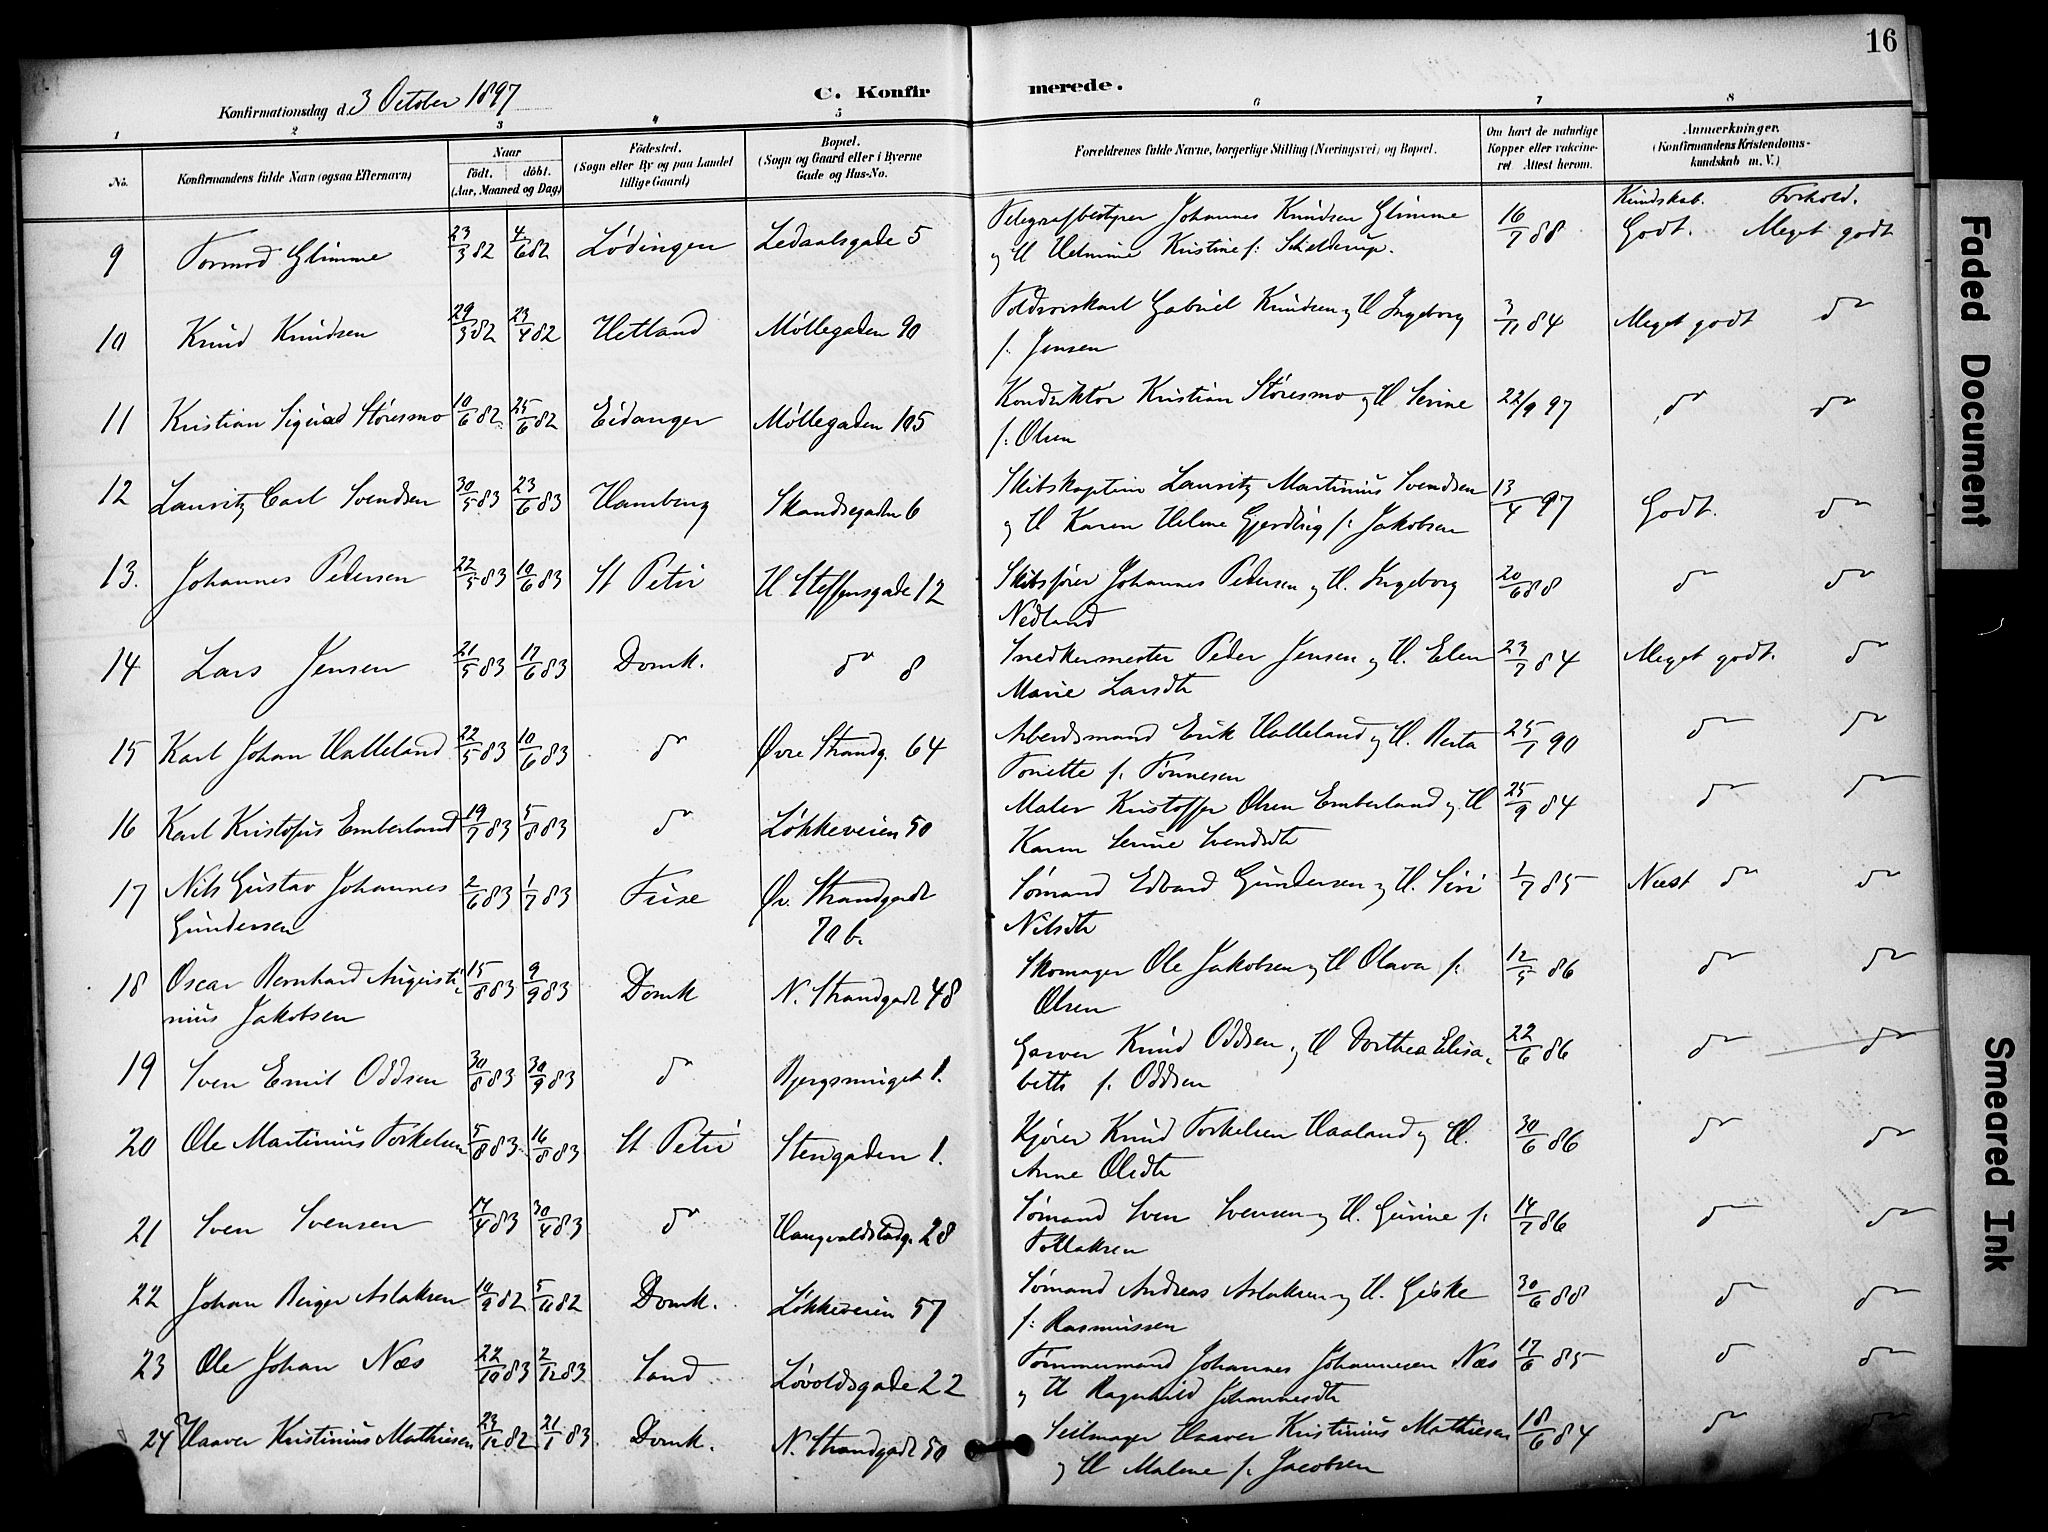 16
Konfirmationsdag d. 3 October 1897 C. Konfir merede.
1 2 3 4 5 6 7 8
No. Konfirmandens fulde Navn (ogsaa Efternavn) Naar födt. döbt. (Aar, Maaned og Dag) Födested. (Sogn eller By og paa Landet tillige Gaard) Bopæl. (Sogn og Gaard eller i Byerne Gade og Hus-No. Forældrenes fulde Navne, borgerlige Stilling (Næringsvei) og Bopæl. Om havt de naturlige Kopper eller vakcineret. Attest herom. Anmærkninger. (Konfirmandens Kristendomskundskab m. V.)
Kundskab. Forhold.
9 Tormod Glimme 23/3 82 4/6 82 Lödingen Ledaalsgade 5 Telegrafbestyrer Johannes Knudsen Glimme 16/7 88 Godt. Meget godt
og H Helmine Kristine f: Schelderup.
10 Knud Knudsen 29/3 82 23/4 82 Hetland Möllegaden 90 Gabriel Knudsen og H Ingeborg 3/11 84 Meget godt do
f: Jensen
11 Kristian Sigurd Störesmo 10/6 82 25/6 82 Eidanger Möllegaden 105 Konduktör Kristian Störesmo og H. Serine 22/9 97 do do
f: Olsen
12 Lauritz Carl Svendsen 30/5 83 23/6 83 Hamburg Skandsegaden 6 Skibskaptein Lauritz Martinius Svendsen 13/4 97 Godt. do
og H Karen Helene Gjerding f: Jakobsen
13. Johannes Pedersen 22/5 83 10/6 83 St Petri H Steffensgade 12 Skibsförer Johannes Pedersen og H. Ingeborg 20/6 88 do do
Nedland
14 Lars Jensen 21/5 83 17/6 83 Domk. do 8 Snedkermester Peder Jensen og H. Elen 23/7 84 Meget godt. do
Marie Larsdtr
15 Karl Johan Halleland 22/5 83 10/6 83 do Øvre Strandg. 64 Arbeidsmand Erik Halleland og H. Berta 25/1 90 do do
Toriette f: Tönnesen
16 Karl Kristofus Emberland 19/7 83 5/8 83 do Lökkeveien 50 Maler Kristoffer Olsen Emberland og H 25/9 84 do do
Karen Serine Svendsdtr
17 Nils Gustav Johannes 2/6 83 1/7 83 Fuse Öv. Strandgade Sömand Edvard Gundersen og H. Siri 1/7 85 Næst do do
Gundersen 70 b. Nilsdtr
18 Oscar Bernhard Augusti- 15/8 83 9/9 83 Domk N. Strandgade 48 Skomager Ole Jakobsen og H Olava f: 12/5 86 do do
nius Jakobsen Olsen
19 Sven Emil Oddsen 30/8 83 30/9 83 do Bjergsmuget 1. Garver Knud Oddsen og H Dorthea Elisa- 22/6 86 do do
beth f. Oddsen
20 Ole Martinius Torkelsen 5/8 83 16/8 83 St Petri Stengaden 1. Kjörer Knud Torkelsen Haaland og H. 30/6 86 do do
Anne Olsdtr
21 Sven Svensen 17/4 83 30/4 83 do Haugvaldstadg. 28 Sömand Sven Svensen og H. Gurine f: 14/7 86 do do
Tollaksen
22 Johan Birger Aslaksen 10/9 82 5/11 82 Domk. Lökkeveien 57 Sömand Andreas Aslaksen og H. Giske 30/6 88 do do
f: Rasmussen
23 Ole Johan Næs 22/10 83 2/12 83 Sand Lövoldsgade 22 Tömmermand Johannes Johannesen Næs 17/6 85 do do
og H Ragnhild Johannesdtr
24 Haaver Kristinius Mathiesen 23/12 82 21/1 83 Domk. N. Strandgade 50 Seilmager Haaver Kristinius Mathiesen 18/6 84 do do
og H Malene f: Jacobsen
Faded Document
Smeared Ink